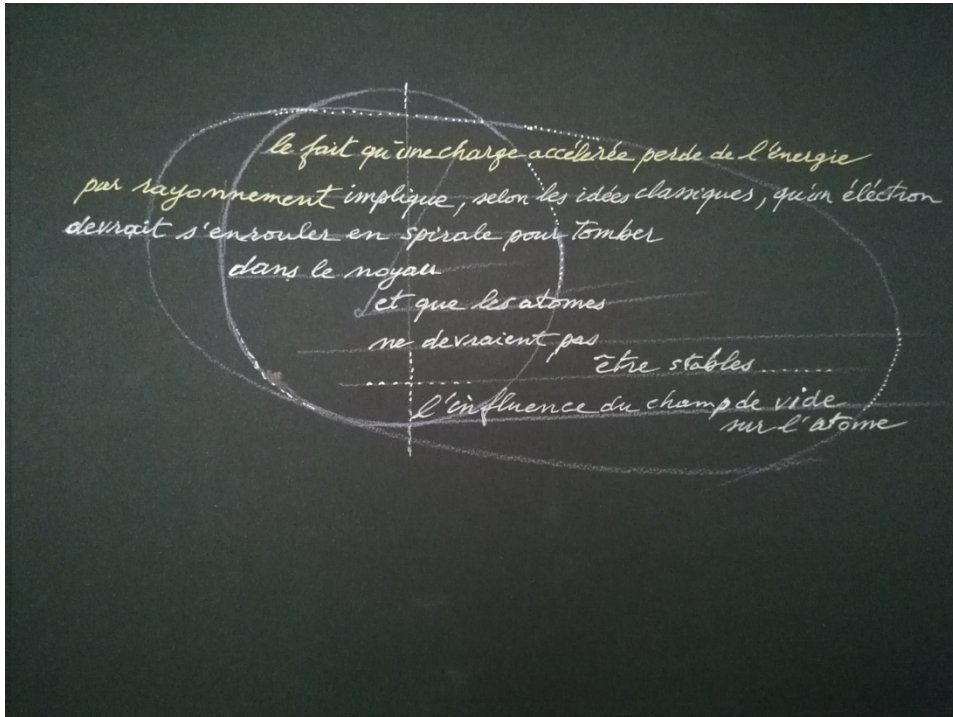 le fait qu'une charge accélerée perde de l'énergie
par rayonnement implique, selon les idées classiques, qu'un éléctron
devrait s'enrouler en spirale pour tomber
dans le noyau
et que les atomes
ne devraient pas
être stables ......
..........
l'influence du champ de vide
sur l'atome